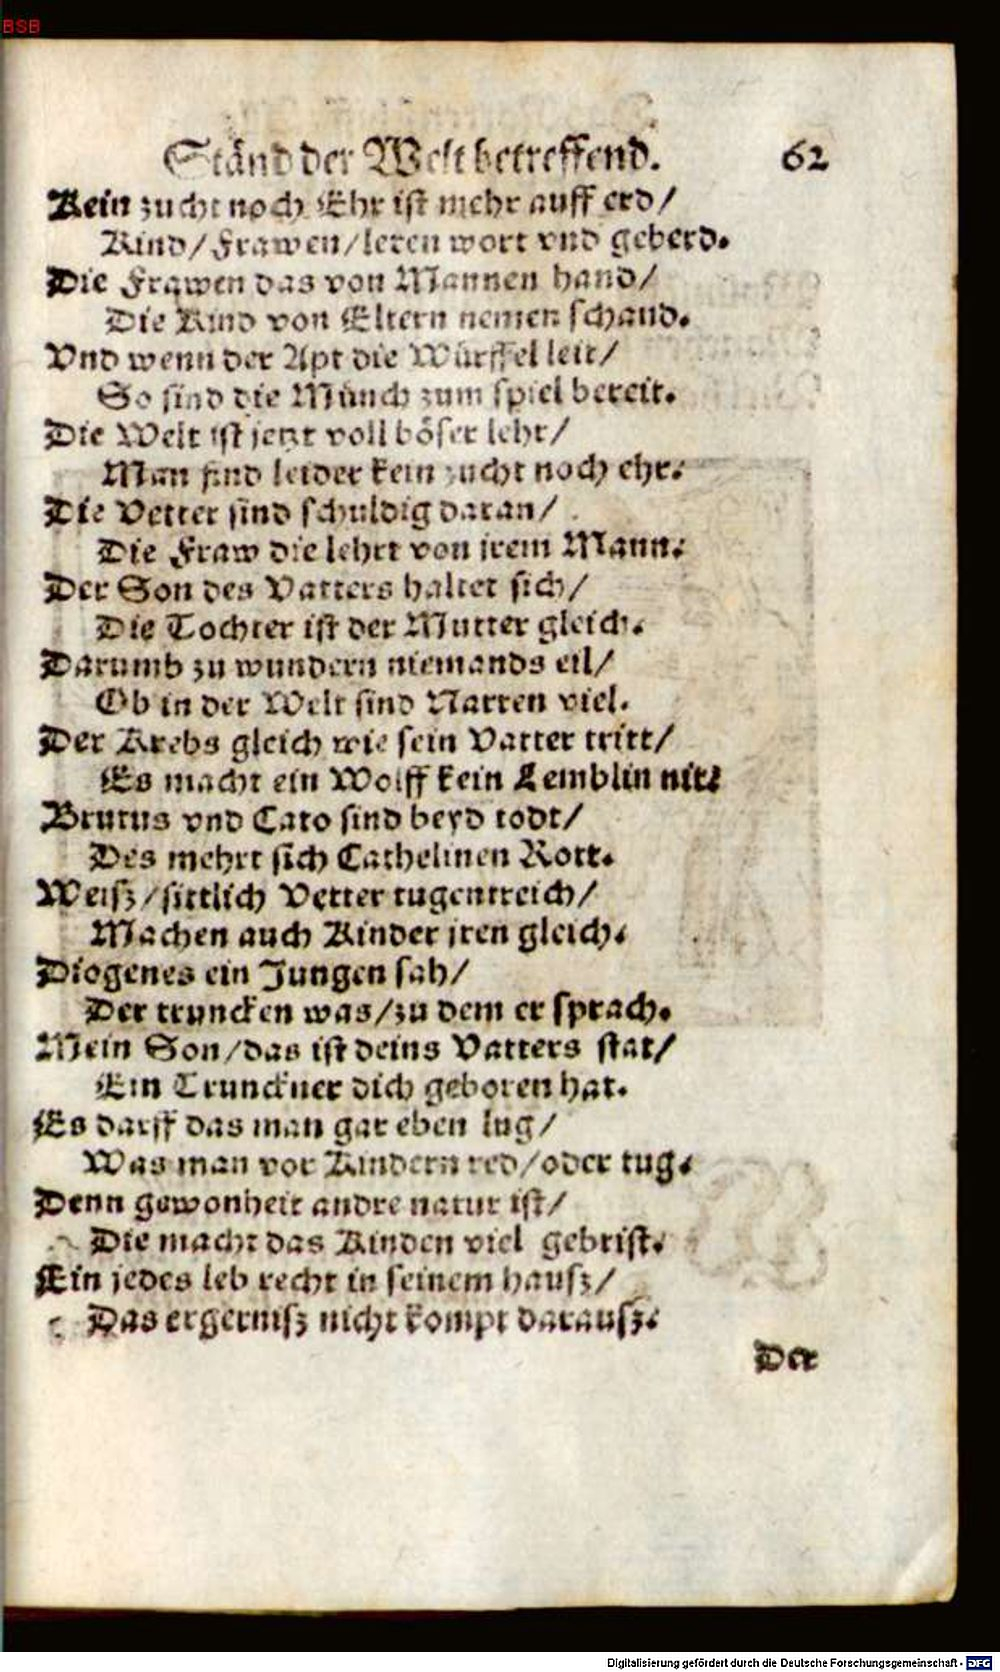 BSB
Ständ der Welt betreffend. 62
Kein zucht noch Ehr ist mehr auff erd/
Kind/Frawen/leren wort vnd geberd.
Die Frawen das von Mannen hand/
Die Kind von Eltern nemen schand.
Vnd wenn der Apt die Würffel leit/
So sind die Münch zum spiel bereit.
Die Welt ist jetzt voll böser lehr/
Man find leider kein zucht noch ehr.
Die Vetter sind schuldig daran/
Die Fraw die lehrt von jrem Mann.
Der Son des Vatters haltet sich/
Die Tochter ist der Mutter gleich.
Darumb zu wundern niemands eil/
Ob in der Welt sind Narren viel.
Der Krebs gleich wie sein Vatter tritt/
Es macht ein Wolff kein Lemblin nit.
Brutus vnd Cato sind beyd todt/
Des mehrt sich Cathelinen Rott.
Weisz/sittlich Vetter tugentreich/
Machen auch Kinder jren gleich.
Diogenes ein Jungen sah/
Der truncken was/zu dem er sprach.
Mein Son/das ist deins Vatters stat/
Ein Trunckner dich geboren hat.
Es darff das man gar eben lug/
Was man vor Kindern red/oder tug.
Denn gewonheit andre natur ist/
Die macht das Kinden viel gebrist.
Ein jedes leb recht in seinem hausz/
Das ergernisz nicht kompt darausz.
Der
Digitalisierung gefördert durch die Deutsche Forschungsgemeinschaft - DFG